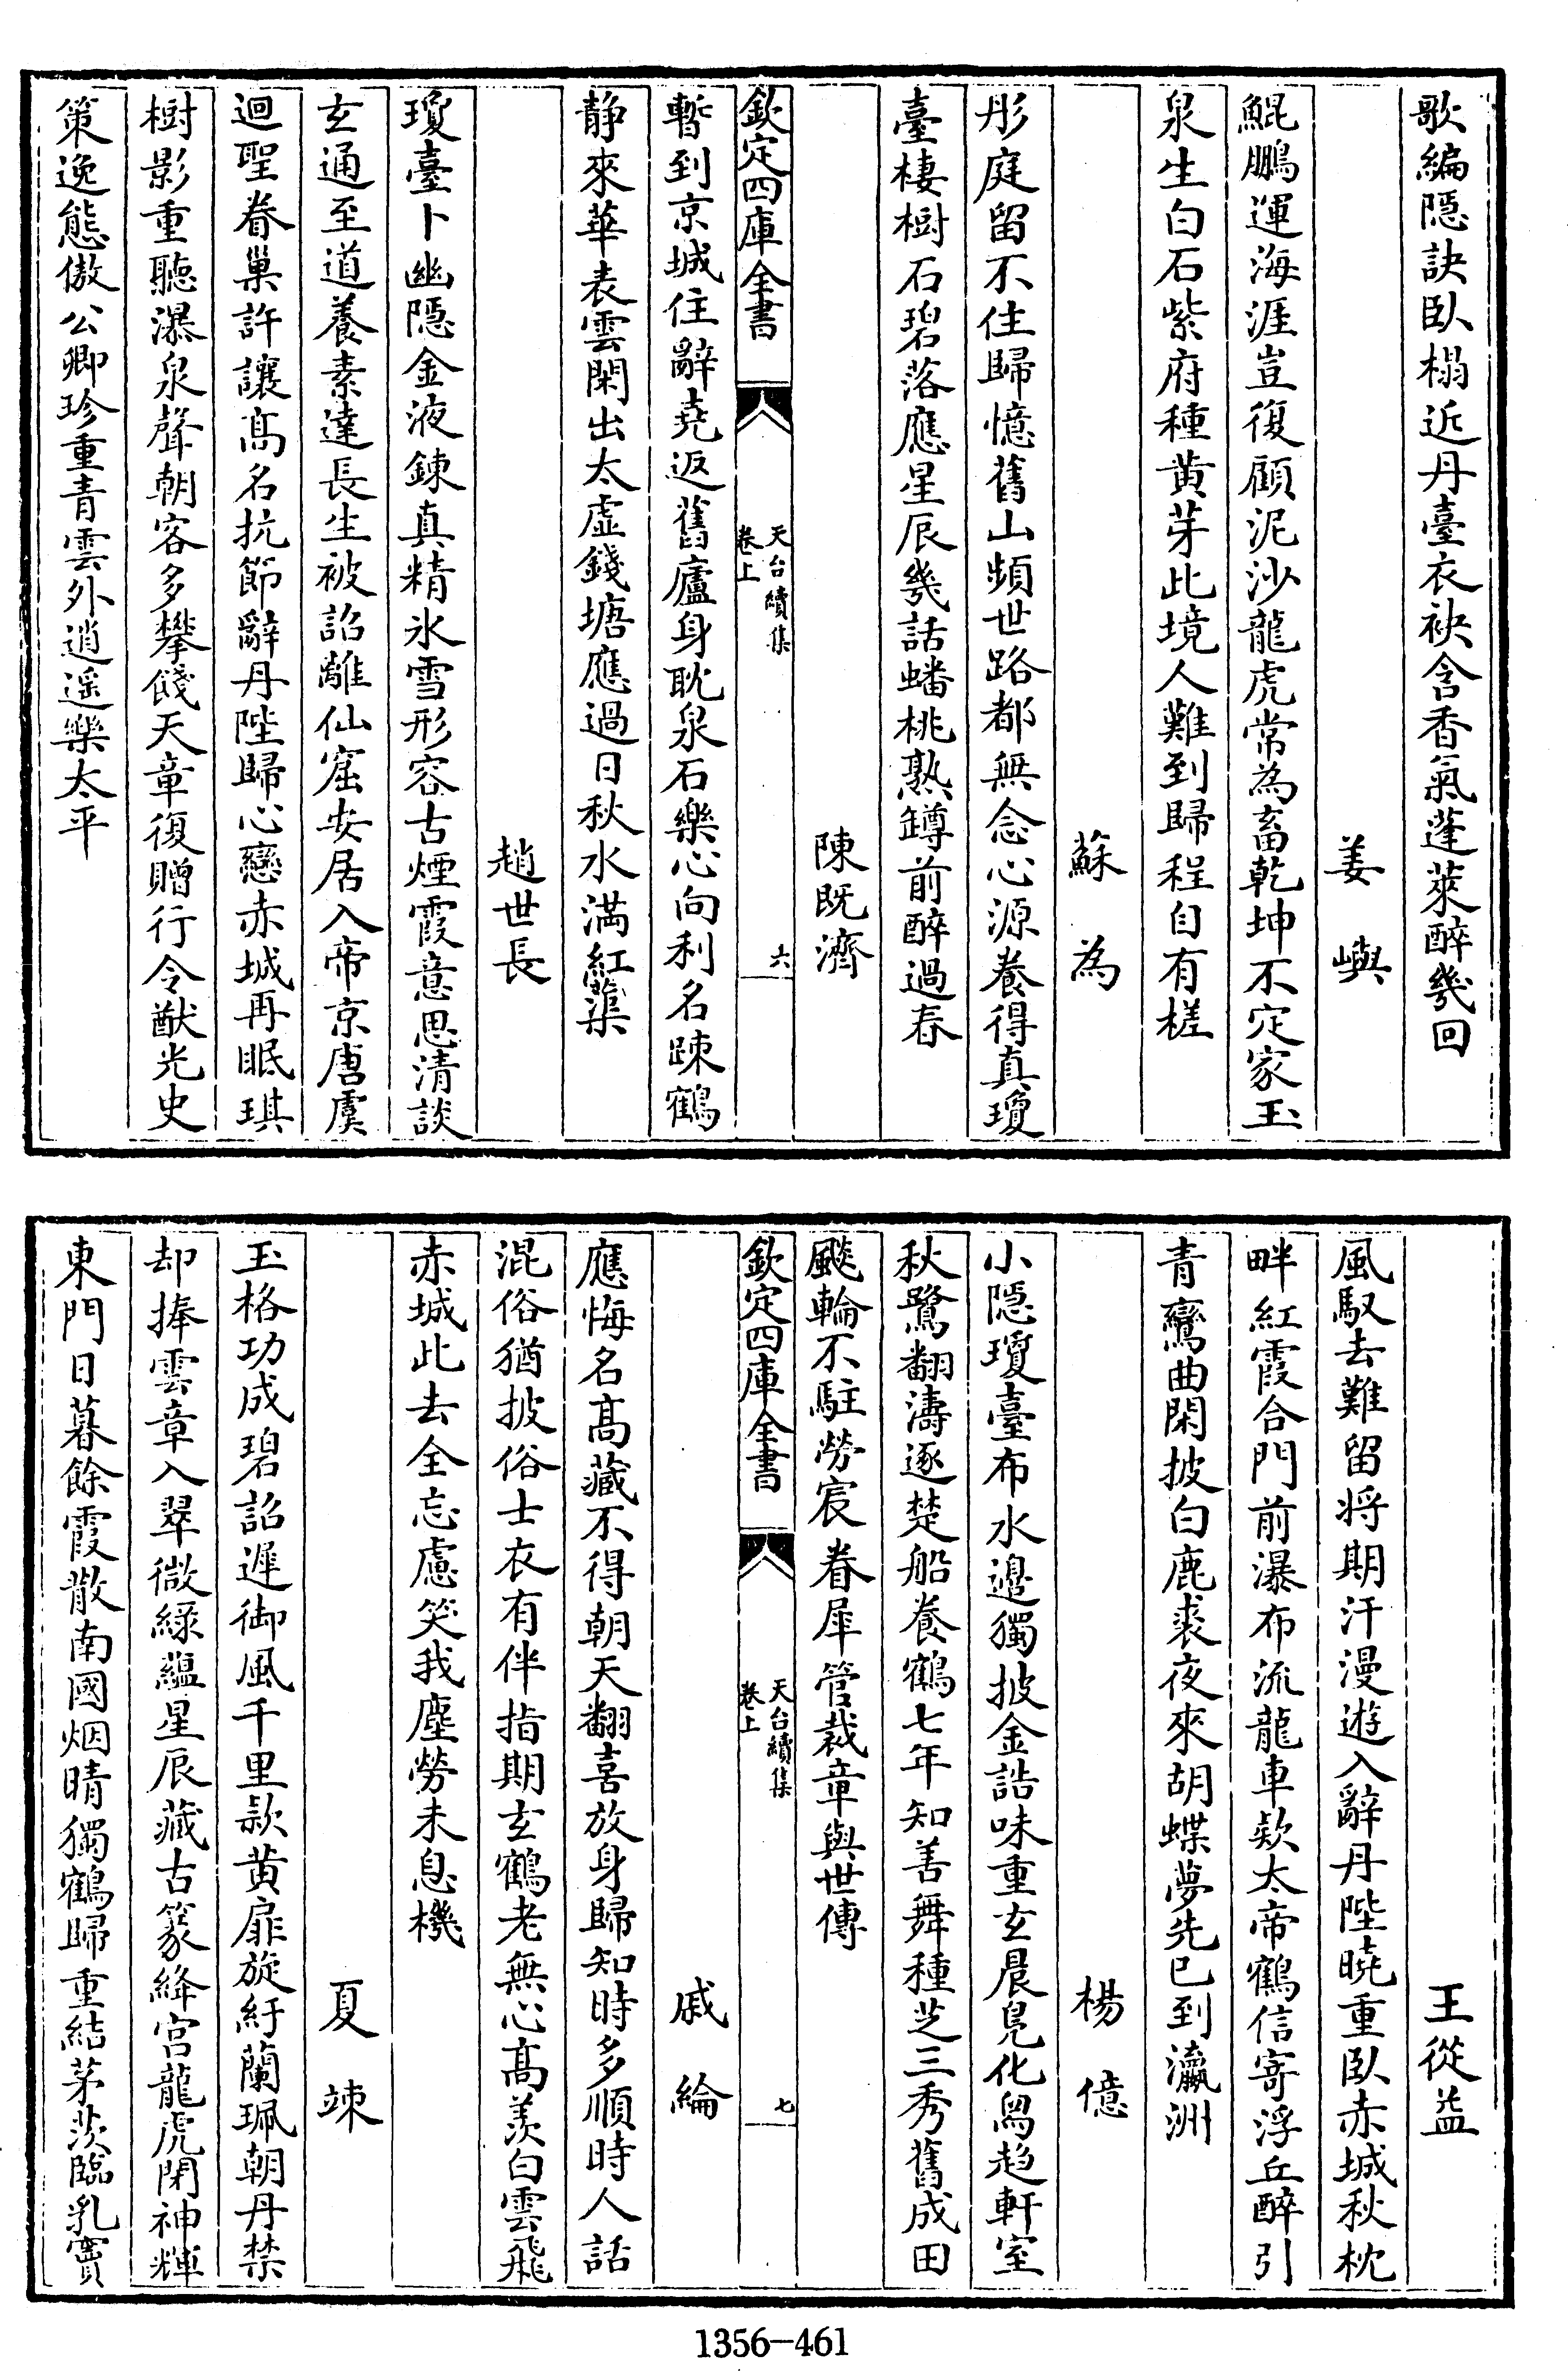 歌編隱訣臥榻近丹臺衣袂含香氣蓬萊醉幾回
姜嶼
鯤鵬運海涯豈復顧泥沙龍虎常為畜乾坤不定家玉
泉生白石紫府種黄芽此境人難到歸程自有槎
蘇為
彤庭留不住歸憶舊山頻世路都無念心源養得真瓊
臺棲樹石碧落應星辰幾話蟠桃熟罇前醉過春
陳既濟
欽定四庫全書
天台續集
卷上
六
暫到京城住辭堯返舊廬身耽泉石樂心向利名踈鶴
静來華表雲閑出太虛錢塘應過日秋水满紅蕖
趙世長
瓊臺卜幽隱金液鍊真精氷雪形容古煙霞意思清談
玄通至道養素達長生被詔離仙窟安居入帝京唐虞
迴聖眷巢許讓髙名抗節辭丹陛歸心戀赤城再眠琪
樹影重聽瀑泉聲朝客多攀餞天章復贈行令猷光史
策逸態傲公卿珍重青雲外逍遥樂太平
王從益
風馭去難留将期汗漫遊入辭丹陛曉重臥赤城秋枕
畔紅霞合門前瀑布流龍車欵太帝鶴信寄浮丘醉引
青鸞曲閑披白鹿裘夜來胡蝶夢先已到瀛洲
楊億
小隱瓊臺布水邉獨披金誥味重玄晨鳬化舄趋軒室
秋鷺翻濤逐楚船養鶴七年知善舞種芝三秀舊成田
飈輪不駐勞宸眷犀管裁章與世傳
欽定四庫全書
天台續集
卷上
七
戚綸
應悔名髙藏不得朝天翻喜放身歸知時多順時人話
混俗猶披俗士衣有伴指期玄鶴老無心髙羨白雲飛
赤城此去全忘慮笑我塵勞未息機
夏竦
玉格功成碧詔遲御風千里款黄扉旋紆蘭珮朝丹禁
却捧雲章入翠微緑蘊星辰藏古篆絳宫龍虎閉神輝
東門日暮餘霞散南國烟晴獨鶴歸重結茅茨臨乳竇
1356-461